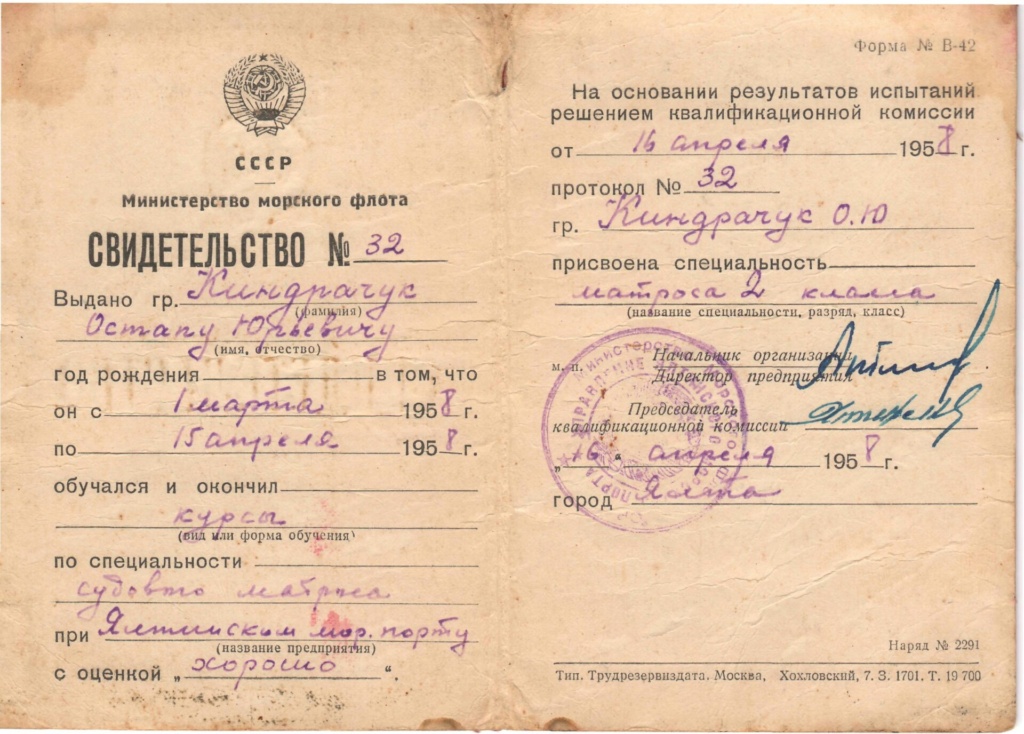 СССР
Министерство морского флота
СВИДЕТЕЛЬСТВО № 32
Выдано гр. Киндрачук
(фамилия)
Остапу Юрьевичу
(имя, отчество)
год рождения в том, что
он с 1 марта 1958 г.
по 15 апреля 1958 г.
обучался и окончил
курсы
(вид или форма обучения)
по специальности
судового матроса
при Ялтинском мор. порту
(название предприятия)
с оценкой „хорошо“.
Форма № В-42
На основании результатов испытаний
решением квалификационной комиссии
от 16 апреля 1958 г.
протокол № 32
гр. Киндрачук О.Ю
присвоена специальность
матроса 2 класса
(название специальности, разряд, класс)
м. п. Начальник организации
Директор предприятия
Председатель
квалификационной комиссии
„16“ апреля 1958 г.
город Ялта
Министерство Морского
УПРАВЛЕНИЕ ЯЛТИНСКОГО
ПОРТА
Наряд № 2291
Тип. Трудрезервиздата. Москва, Хохловский, 7. З. 1701. Т. 19 700